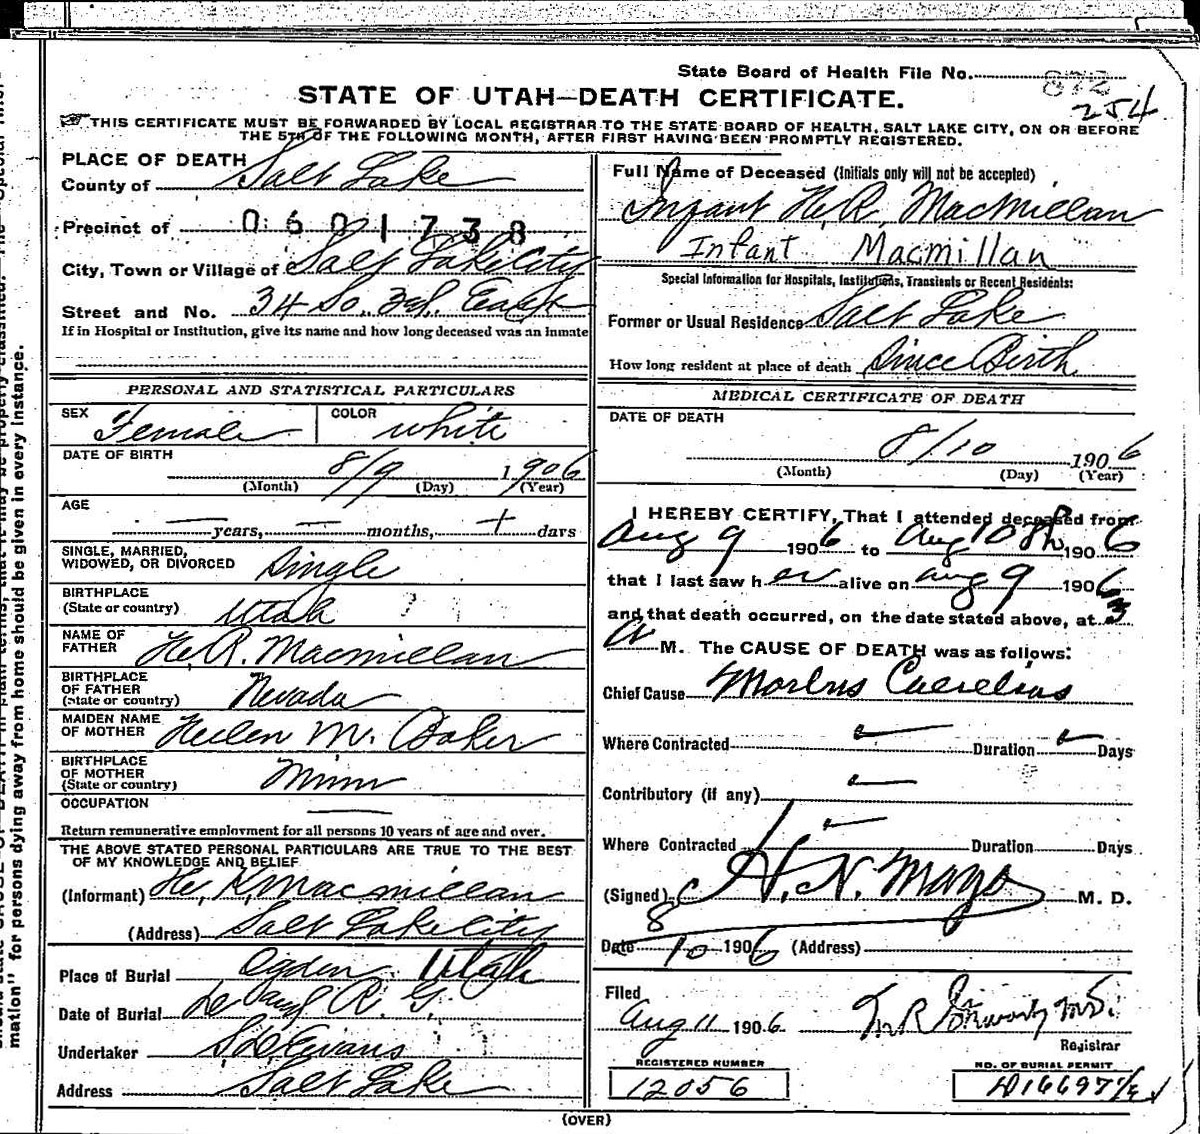 State Board of Health File No. 872
254
STATE OF UTAH—DEATH CERTIFICATE.
THIS CERTIFICATE MUST BE FORWARDED BY LOCAL REGISTRAR TO THE STATE BOARD OF HEALTH, SALT LAKE CITY, ON OR BEFORE
THE 5TH OF THE FOLLOWING MONTH, AFTER FIRST HAVING BEEN PROMPTLY REGISTERED.
PLACE OF DEATH
County of Salt Lake
Precinct of 0601738
City, Town or Village of Salt Lake City
Street and No. 34 So. 3d. East
If in Hospital or Institution, give its name and how long deceased was an inmate
PERSONAL AND STATISTICAL PARTICULARS
SEX Female COLOR white
DATE OF BIRTH 8/9 1906
(Month) (Day) (Year)
AGE
— years, — months, + days
SINGLE, MARRIED,
WIDOWED, OR DIVORCED Single
BIRTHPLACE
(State or country) Utah
NAME OF
FATHER H.R. Macmillan
BIRTHPLACE
OF FATHER
(State or country) Nevada
MAIDEN NAME
OF MOTHER Helen M. Baker
BIRTHPLACE
OF MOTHER
(State or country) Minn
OCCUPATION —
Return remunerative employment for all persons 10 years of age and over.
THE ABOVE STATED PERSONAL PARTICULARS ARE TRUE TO THE BEST
OF MY KNOWLEDGE AND BELIEF
(Informant) H. R. Macmillan
(Address) Salt Lake City
Place of Burial Ogden Utah
Date of Burial R. G.
Undertaker Evans
Address Salt Lake
Full Name of Deceased (Initials only will not be accepted)
Infant H.R. Macmillan
Infant Macmillan
Special Information for Hospitals, Institutions, Transients or Recent Residents:
Former or Usual Residence Salt Lake
How long resident at place of death Since Birth
MEDICAL CERTIFICATE OF DEATH
DATE OF DEATH
8/10 1906
(Month) (Day) (Year)
I HEREBY CERTIFY, That I attended deceased from
Aug 9 1906 to Aug 10 1906
that I last saw her alive on Aug 9 1906
and that death occurred, on the date stated above, at 3
A M. The CAUSE OF DEATH was as follows:
Chief Cause Morbus Caerelius
Where Contracted — Duration — Days
Contributory (if any) —
Where Contracted — Duration Days
(Signed) C H. N. Mayo M. D.
Date 8 10 1906 (Address)
Filed
Aug 11 1906 M.D.
Registrar
REGISTERED NUMBER
12056
NO. OF BURIAL PERMIT
(OVER)
mation" for persons dying away from home should be given in every instance.